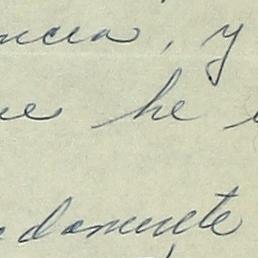 ncia, y
ue he
damente